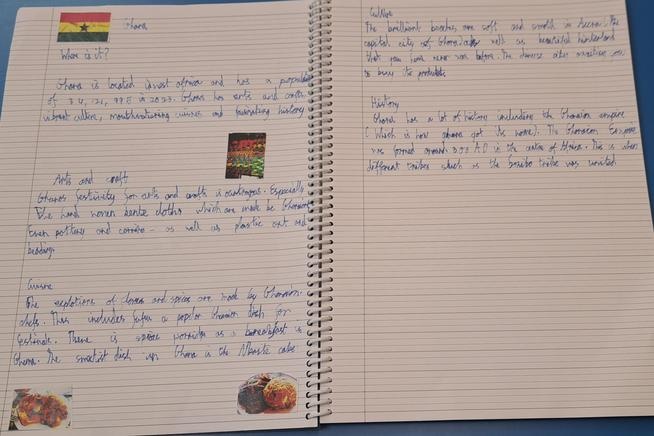 Ghana
Where is it?
Ghana is located in west africa and has a population
of 34, 121, 985 in 2023. Ghana has arts and crafts,
vibrant culture, mouthwatering cuisine and fascinating history
Arts and craft
Ghanas festivity for arts and crafts is Especially
The hand woven kente clothes which are made be Ghanaians
Even pottery and - as well as plastic art and
beading.
Cuisine
The explotions of flavors and spices are made by Ghanaian
chefs. This includes fufu a popular Ghanaian dish for
festivals. There is spice porridge as a breakfast in
Ghana. The smartist dish in Ghana is the cake
Culture
The brilliant beaches are soft and smooth in Accra the
capital city of Ghana as well as beautiful hinterland
that you have never seen before. The you
to buy the products
History
Ghana has a lot of history including the Ghanaian empire
( Which is how ghana got its name). The Ghanaian Empire
was formed around 300 A.D in the centre of Africa. This is when
different tribes which is the tribe was united